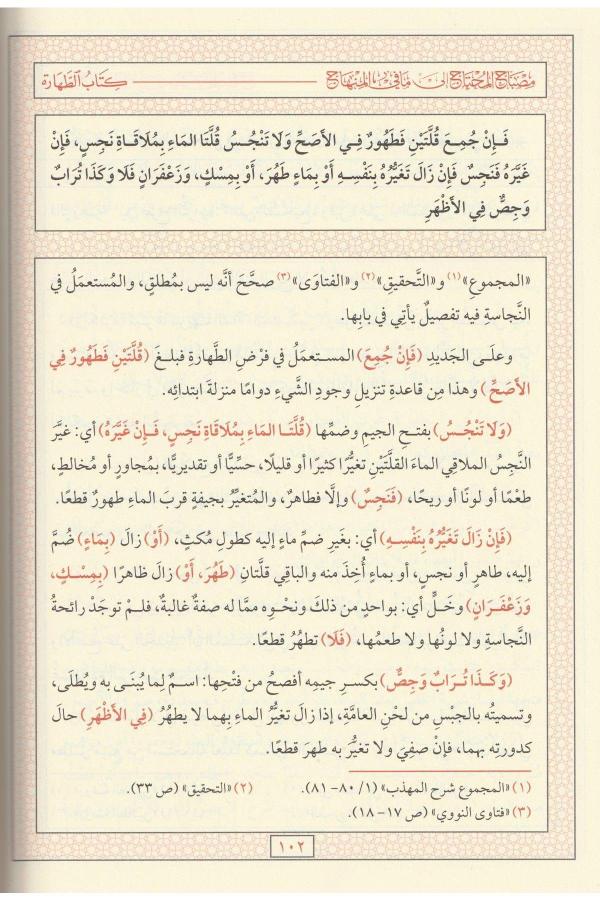 مِصْبَاحُ المُحْتَاجِ إِلَىٰ مَا فِي المِنْهَاجِ
كِتَابُ الطَّهَارَةِ
فَإِنْ جُمِعَ قُلَّتَيْنِ فَطَهُورٌ فِي الأَصَحِّ وَلَا تَنْجُسُ قُلَّتَا المَاءِ بِمُلَاقَاةِ نَجِسٍ، فَإِنْ
غَيَّرَهُ فَنَجِسٌ فَإِنْ زَالَ تَغَيُّرُهُ بِنَفْسِهِ أَوْ بِمَاءٍ طَهُرَ، أَوْ بِمِسْكٍ، وَزَعْفَرَانٍ فَلَا وَكَذَا تُرَابٌ
وَجِصٌّ فِي الأَظْهَرِ
«المجموعِ» (١) و«التَّحقيقِ» (٢) و«الفتاوَى» (٣) صحَّحَ أنَّه ليس بمُطلقٍ، والمُستعمَلُ في
النَّجاسةِ فيه تفصيلٌ يأتِي في بابِها.
وعلَى الجَديدِ (فَإِنْ جُمِعَ) المستعمَلُ في فرْضِ الطَّهارةِ فبلغَ (قُلَّتَيْنِ فَطَهُورٌ فِي
الأَصَحِّ) وهذا مِن قاعدةِ تنزيلِ وجودِ الشَّيءِ دوامًا منزلةَ ابتدائِه.
(وَلَا تَنْجُسُ) بفتحِ الجيمِ وضمِّها (قُلَّتَا المَاءِ بِمُلَاقَاةِ نَجِسٍ، فَإِنْ غَيَّرَهُ) أي: غيَّرَ
النَّجِسُ الملاقِي الماءَ القلَّتَيْنِ تغيُّرًا كثيرًا أو قليلًا، حسِّيًّا أو تقديريًّا، بمُجاورٍ أو مُخالطٍ،
طعْمًا أو لونًا أو ريحًا، (فَنَجِسٌ) وإلَّا فطاهرٌ، والمُتغيِّرُ بجيفةٍ قربَ الماءِ طهورٌ قطعًا.
(فَإِنْ زَالَ تَغَيُّرُهُ بِنَفْسِهِ) أي: بغَيرِ ضمِّ ماءٍ إليه كطولِ مُكثٍ، (أَوْ) زالَ (بِمَاءٍ) ضُمَّ
إليه، طاهرٍ أو نجسٍ، أو بماءٍ أُخِذَ منه والباقِي قلَّتانِ (طَهُرَ، أَوْ) زالَ ظاهرًا (بِمِسْكٍ،
وَزَعْفَرَانٍ) وخَلٍّ أي: بواحدٍ من ذلكَ ونحْوِه ممَّا له صفةٌ غالبةٌ، فلمْ توجَدْ رائحةُ
النَّجاسةِ ولا لونُها ولا طعمُها، (فَلَا) تطهُرُ قطعًا.
(وَكَذَا تُرَابٌ وَجِصٌّ) بكسرِ جيمِه أفصحُ من فتْحِها: اسمٌ لِما يُبنَى به ويُطلَى،
وتسميتُه بالجبْسِ من لحْنِ العامَّةِ، إذا زالَ تغيُّرُ الماءِ بِهما لا يطهُرُ (فِي الأَظْهَرِ) حالَ
كدورتِه بهما، فإنْ صفِيَ ولا تغيُّرَ به طهرَ قطعًا.
(١) «المجموع شرح المهذب» (١/ ٨٠-٨١).
(٢) «التحقيق» (ص ٣٣).
(٣) «فتاوى النووي» (ص ١٧-١٨).
١٠٢